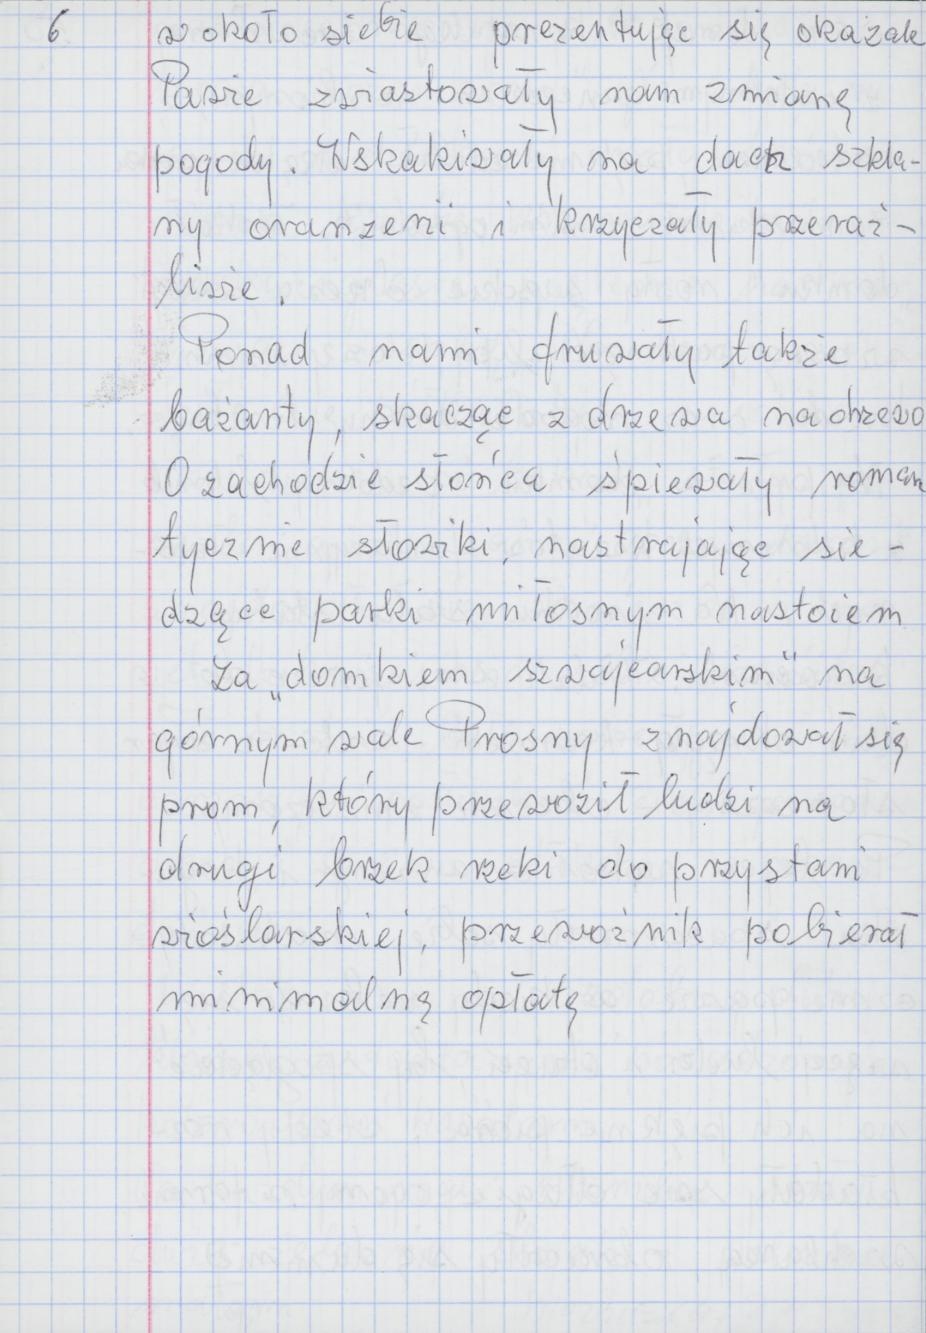 6 w około siebie prezentując się okazale
Pawie zwiastowały nam zmianę
pogody. Wskakiwały na dach szkla-
ny oranzerii i krzyczały przeraź-
liwie.
Ponad nami fruwały także
bażanty, skacząc z drzewa na drzewo
O zachodzie słońca śpiewały roman
tycznie słowiki, nastrajając sie-
dzące parki miłosnym nastoiem
Za „domkiem szwajcarskim" na
górnym wale Prosny znajdował się
prom, który przewoził ludzi na
drugi brzek rzeki do przystani
wioślarskiej, przewoźnik pobierał
minimalną opłatę